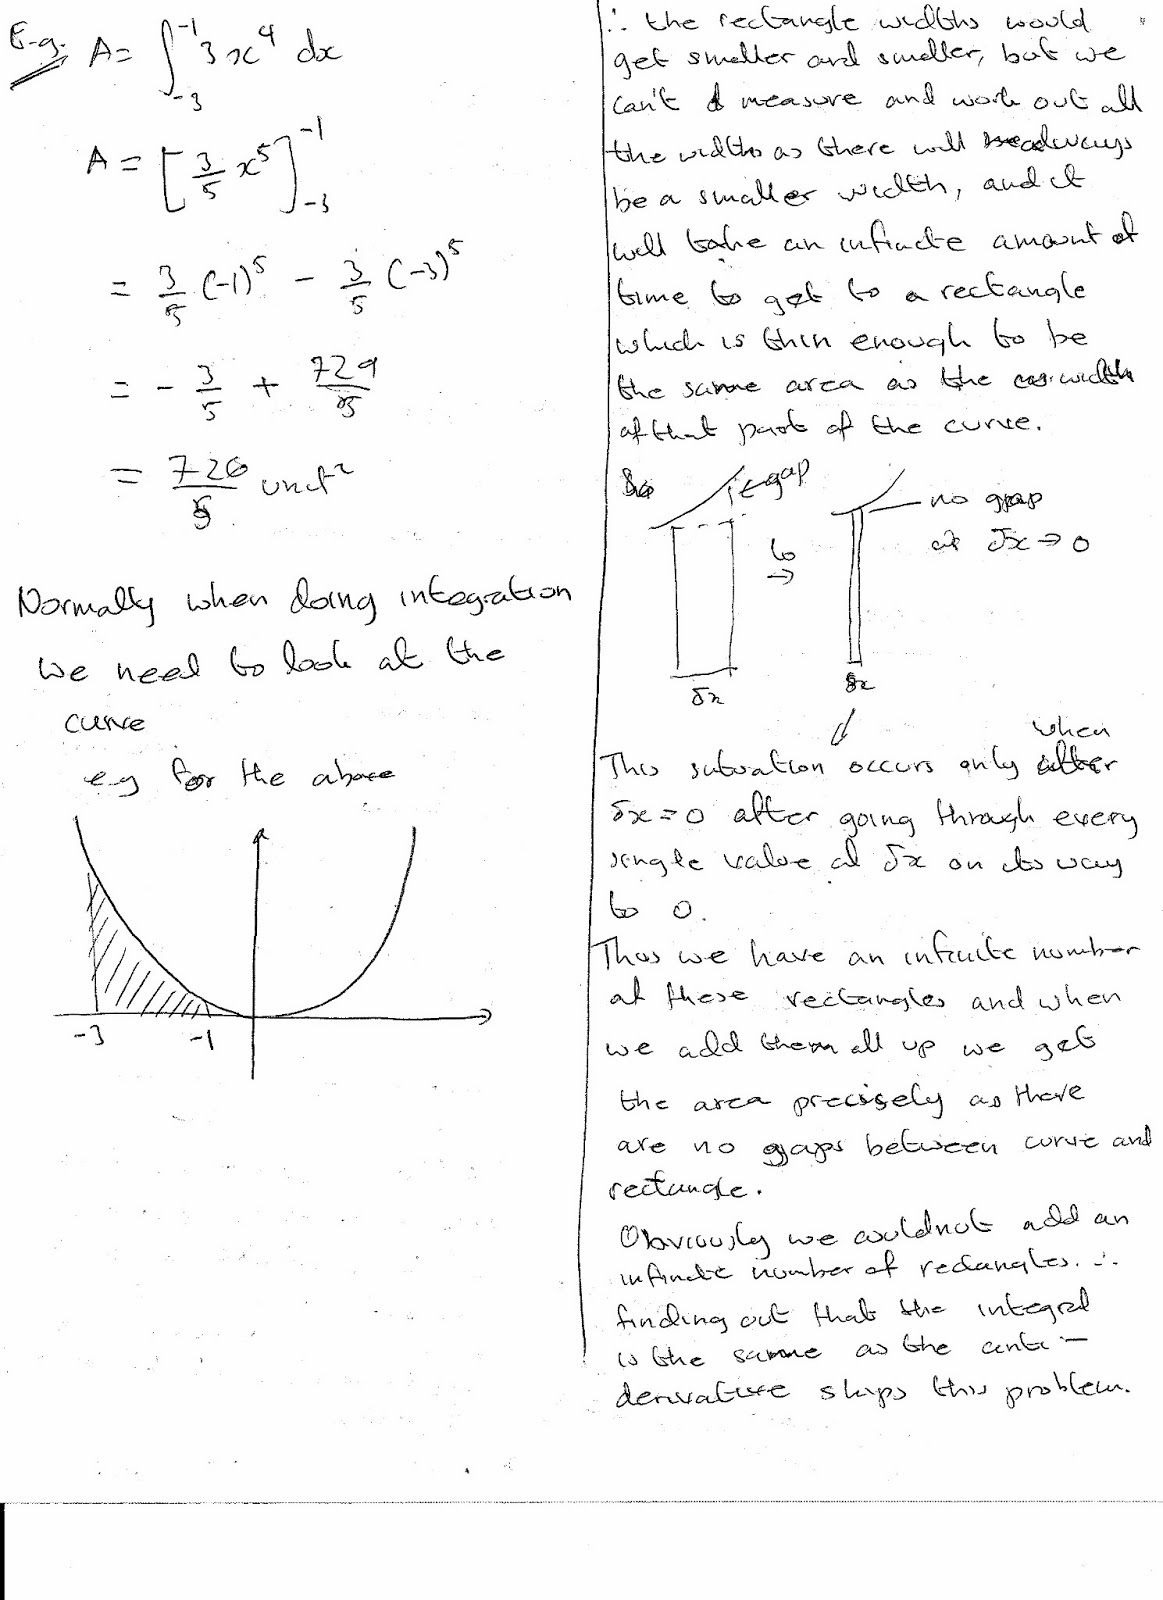 E.g. A = ∫_{-3}^{-1} 3x⁴ dx
A = [3/5 x⁵]_{-3}^{-1}
= 3/5 (-1)⁵ - 3/5 (-3)⁵
= - 3/5 + 729/5
= 726/5 unit²
Normally when doing integration
we need to look at the
curve
e.g for the above
-3 -1
∴ the rectangle widths would
get smaller and smaller, but we
can't measure and work out all
the widths as there will always
be a smaller width, and it
will take an infinite amount of
time to get to a rectangle
which is thin enough to be
the same area as the width
of that part of the curve.
gap
no gap
at δx → 0
to
→
δx
δx
This situation occurs only when
δx = 0 after going through every
single value of δx on its way
to 0.
Thus we have an infinite number
of these rectangles and when
we add them all up we get
the area precisely as there
are no gaps between curve and
rectangle.
Obviously we couldnot add an
infinite number of rectangles. ∴
finding out that the integral
is the same as the anti-
derivative skips this problem.